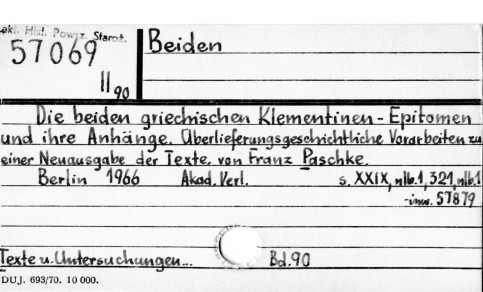 Hist. Powsz. Starot.
57069
II 90
Beiden
Die beiden griechischen Klementinen-Epitomen
und ihre Anhänge. Überlieferungsgeschichtliche Vorarbeiten zu
einer Neuausgabe der Texte, von Franz Paschke.
Berlin 1966 Akad. Verl. s. XXIX, nlb. 1, 321, nlb. 1
-inw. 57879
Texte u. Untersuchungen... Bd. 90
DUJ. 693/70. 10 000.